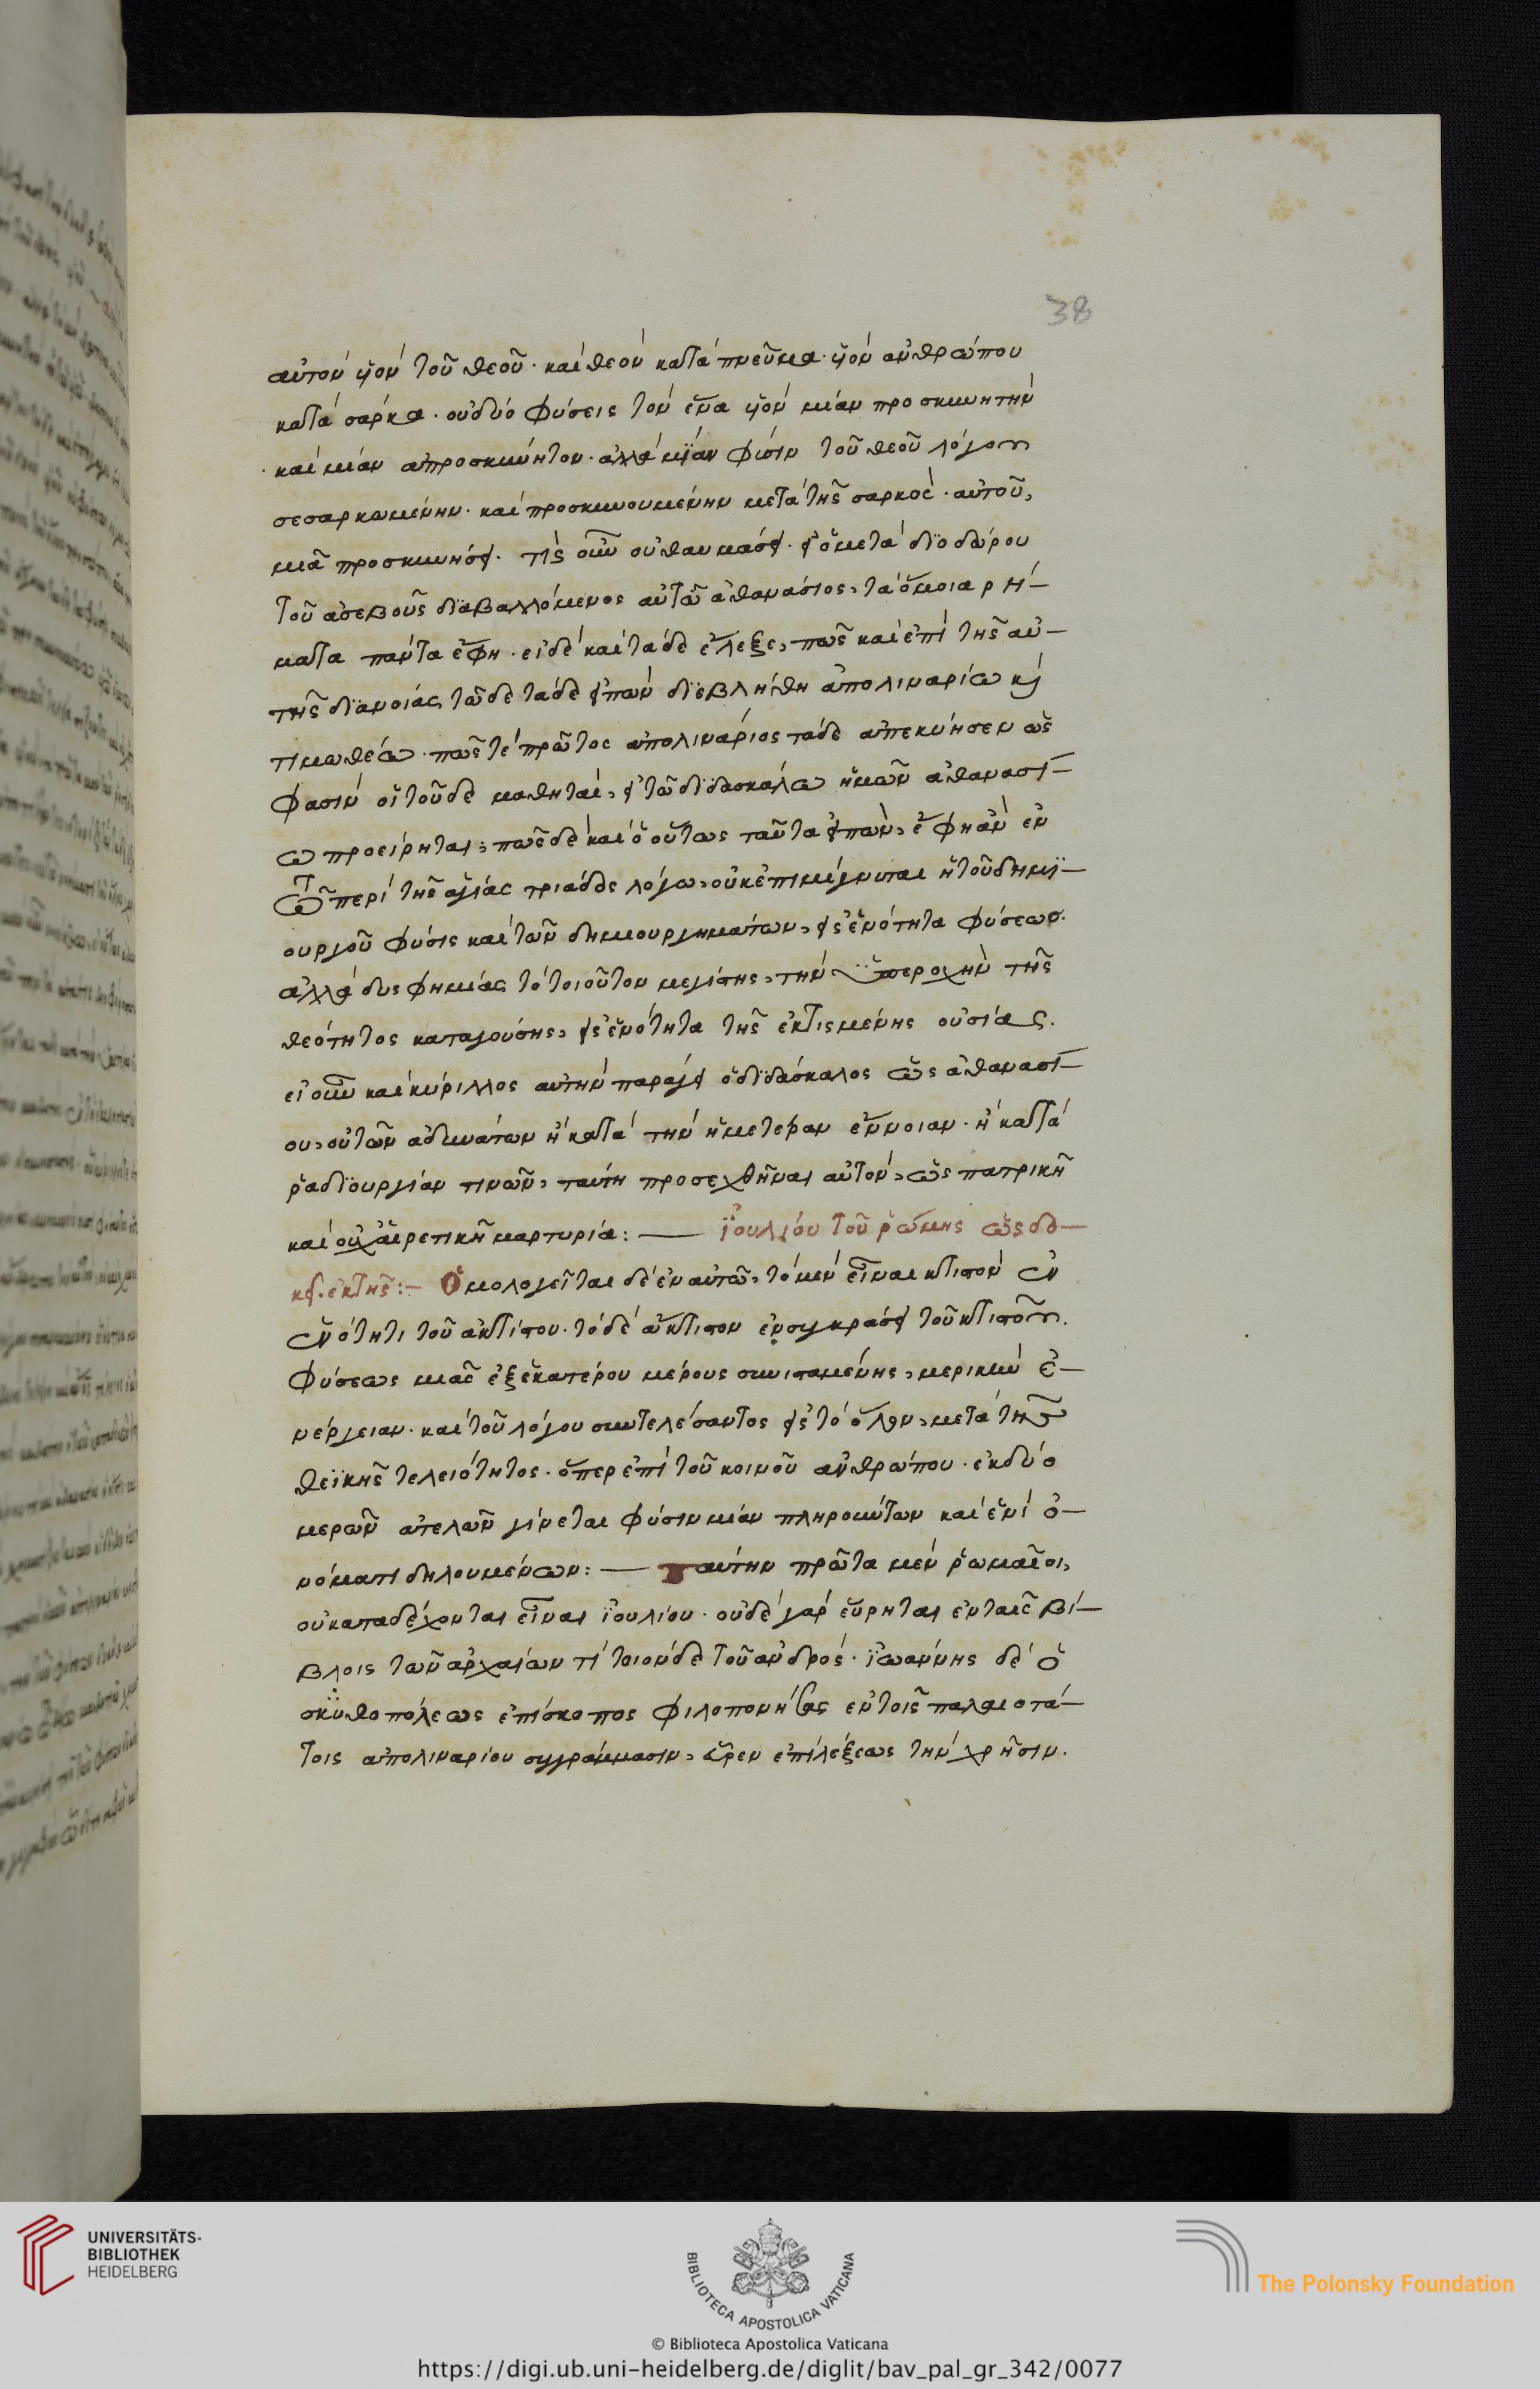 38
αὐτὸν ὑϊὸν τοῦ θεοῦ· καὶ θεὸν κατὰ πνεῦμα· ὑϊὸν ἀνθρώπου
κατὰ σάρκα· οὐ δύο φύσεις τὸν ἕνα ὑϊὸν μίαν προσκυνητὴν
καὶ μίαν ἀπροσκύνητον· ἀλλὰ μίαν φύσιν τοῦ θεοῦ λόγου
σεσαρκωμένην· καὶ προσκυνουμένην μετὰ τῆς σαρκὸς αὐτοῦ,
μιᾶ προσκυνήσει· τίς οὖν οὐ θαυμάσει· εἰ ὁ μετὰ διοδώρου
τοῦ ἀσεβοῦς διαβαλλόμενος αὐτῶ ἀθανάσιος, τὰ ὅμοια ῥή-
ματα πάντα ἔφη· εἰ δὲ καὶ τάδε ἔλεξε, πῶς καὶ ἐπὶ τῆς αὐ-
τῆς διανοίας τῶδε τάδε εἰπὼν διεβλήθη ἀπολιναρίω κὶ
τιμωθέω· πῶς τὲ πρῶτος ἀπολινάριος τάδε ἀπεκύησεν ὥς
φασιν οἱ τοῦδε μαθηταὶ, εἰ τῶ διδασκάλω ἡμῶν ἀθανασί-
ω προείρηται, πῶς δὲ καὶ ὁ οὕτως ταῦτα εἰπὼν, ἔφη ἂν ἐν
τῶ περὶ τῆς ἁγίας τριάδος λόγω, οὐκ ἐπιμίγνυται ἡ τοῦ δημι-
ουργοῦ φύσις καὶ τῶν δημιουργημάτων, εἰς ἑνότητα φύσεως·
ἀλλὰ δυσφημίας τὸ τοιοῦτον μεγίστης, τὴν ὑπεροχὴν τῆς
θεότητος καταγούσης, εἰς ἑνότητα τῆς ἐκτισμένης οὐσίας.
εἰ οὖν καὶ κύριλλος αὐτὴν παράγει ὁ διδάσκαλος ὡς ἀθανασί-
ου, οὐ τῶν ἀδυνάτων ἢ κατὰ τὴν ἡμετέραν ἔννοιαν· ἢ κατὰ
ῥαδιουργίαν τινῶν, ταύτη προσεχθῆναι αὐτὸν, ὡς πατρικῆ
καὶ οὐχ αἱρετικῆ μαρτυρία: — ἰουλίου τοῦ ῥώμης ὡς δο-
κεῖ. ἐκ τῆς:- Ὁμολογεῖται δὲ ἐν αὐτῶ, τὸ μὲν εἶναι κτιστὸν ἐν
ἑνότητι τοῦ ἀκτίστου· τὸ δὲ ἄκτιστον ἐν συγκράσει τοῦ κτιστοῦ.
φύσεως μιᾶς ἐξ ἑκατέρου μέρους συνισταμένης, μερικὴν ἐ-
νέργειαν· καὶ τοῦ λόγου συντελέσαντος εἰς τὸ ὅλον, μετὰ τῆς
θεϊκῆς τελειότητος· ὅπερ ἐπὶ τοῦ κοινοῦ ἀνθρώπου· ἐκ δύο
μερῶν ἀτελῶν γίνεται φύσιν μίαν πληρούντων καὶ ἑνὶ ὀ-
νόματι δηλουμένων: — Ταύτην πρῶτα μὲν ῥωμαῖοι,
οὐ καταδέχονται εἶναι ἰουλίου· οὐδὲ γὰρ εὕρηται ἐν ταῖς βί-
βλοις τῶν ἀρχαίων τί τοιόνδε τοῦ ἀνδρός· ἰωάννης δὲ ὁ
σκυθοπόλεως ἐπίσκοπος φιλοπονήσας ἐν τοῖς παλαιοτά-
τοις ἀπολιναρίου συγράμμασιν, εὗρεν ἐπὶ λέξεως τὴν χρῆσιν.
UNIVERSITÄTS-
BIBLIOTHEK
HEIDELBERG
BIBLIOTECA APOSTOLICA VATICANA
The Polonsky Foundation
© Biblioteca Apostolica Vaticana
https://digi.ub.uni-heidelberg.de/diglit/bav_pal_gr_342/0077